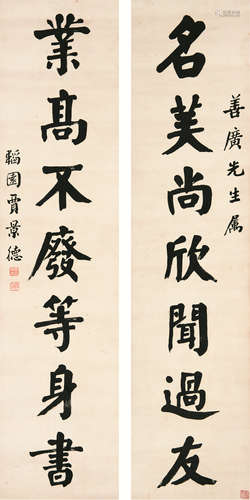 善廣先生属
名美尚欣聞過友
業高不廢等身書
韜園賈景德